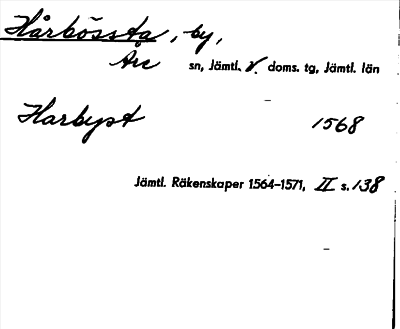 Hårbössta, by,
Åre sn, Jämtl. v. doms. tg, Jämtl. län
Harbyst 1568
Jämtl. Räkenskaper 1564-1571, II s. 138